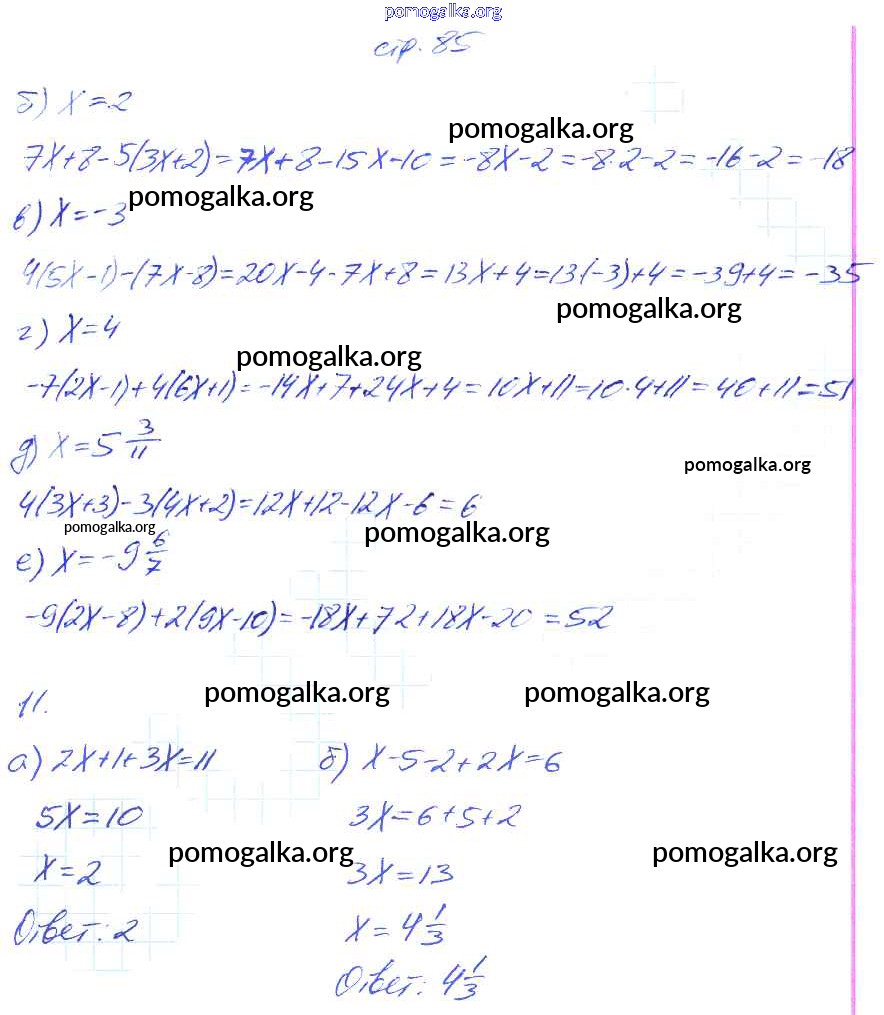 pomogalka.org
стр. 85
б) x=2
pomogalka.org
7x+8-5(3x+2)=7x+8-15x-10=-8x-2=-8·2-2=-16-2=-18
pomogalka.org
в) x=-3
4(5x-1)-(7x-8)=20x-4-7x+8=13x+4=13·(-3)+4=-39+4=-35
pomogalka.org
г) x=4
pomogalka.org
-7(2x-1)+4(6x+1)=-14x+7+24x+4=10x+11=10·4+11=40+11=51
д) x=5 3/11
pomogalka.org
4(3x+3)-3(4x+2)=12x+12-12x-6=6
pomogalka.org
pomogalka.org
е) x=-9 6/7
-9(2x-8)+2(9x-10)=-18x+72+18x-20=52
pomogalka.org pomogalka.org
11.
а) 2x+1+3x=11
5x=10
x=2
Ответ: 2
б) x-5-2+2x=6
3x=6+5+2
3x=13
x=4 1/3
Ответ: 4 1/3
pomogalka.org pomogalka.org